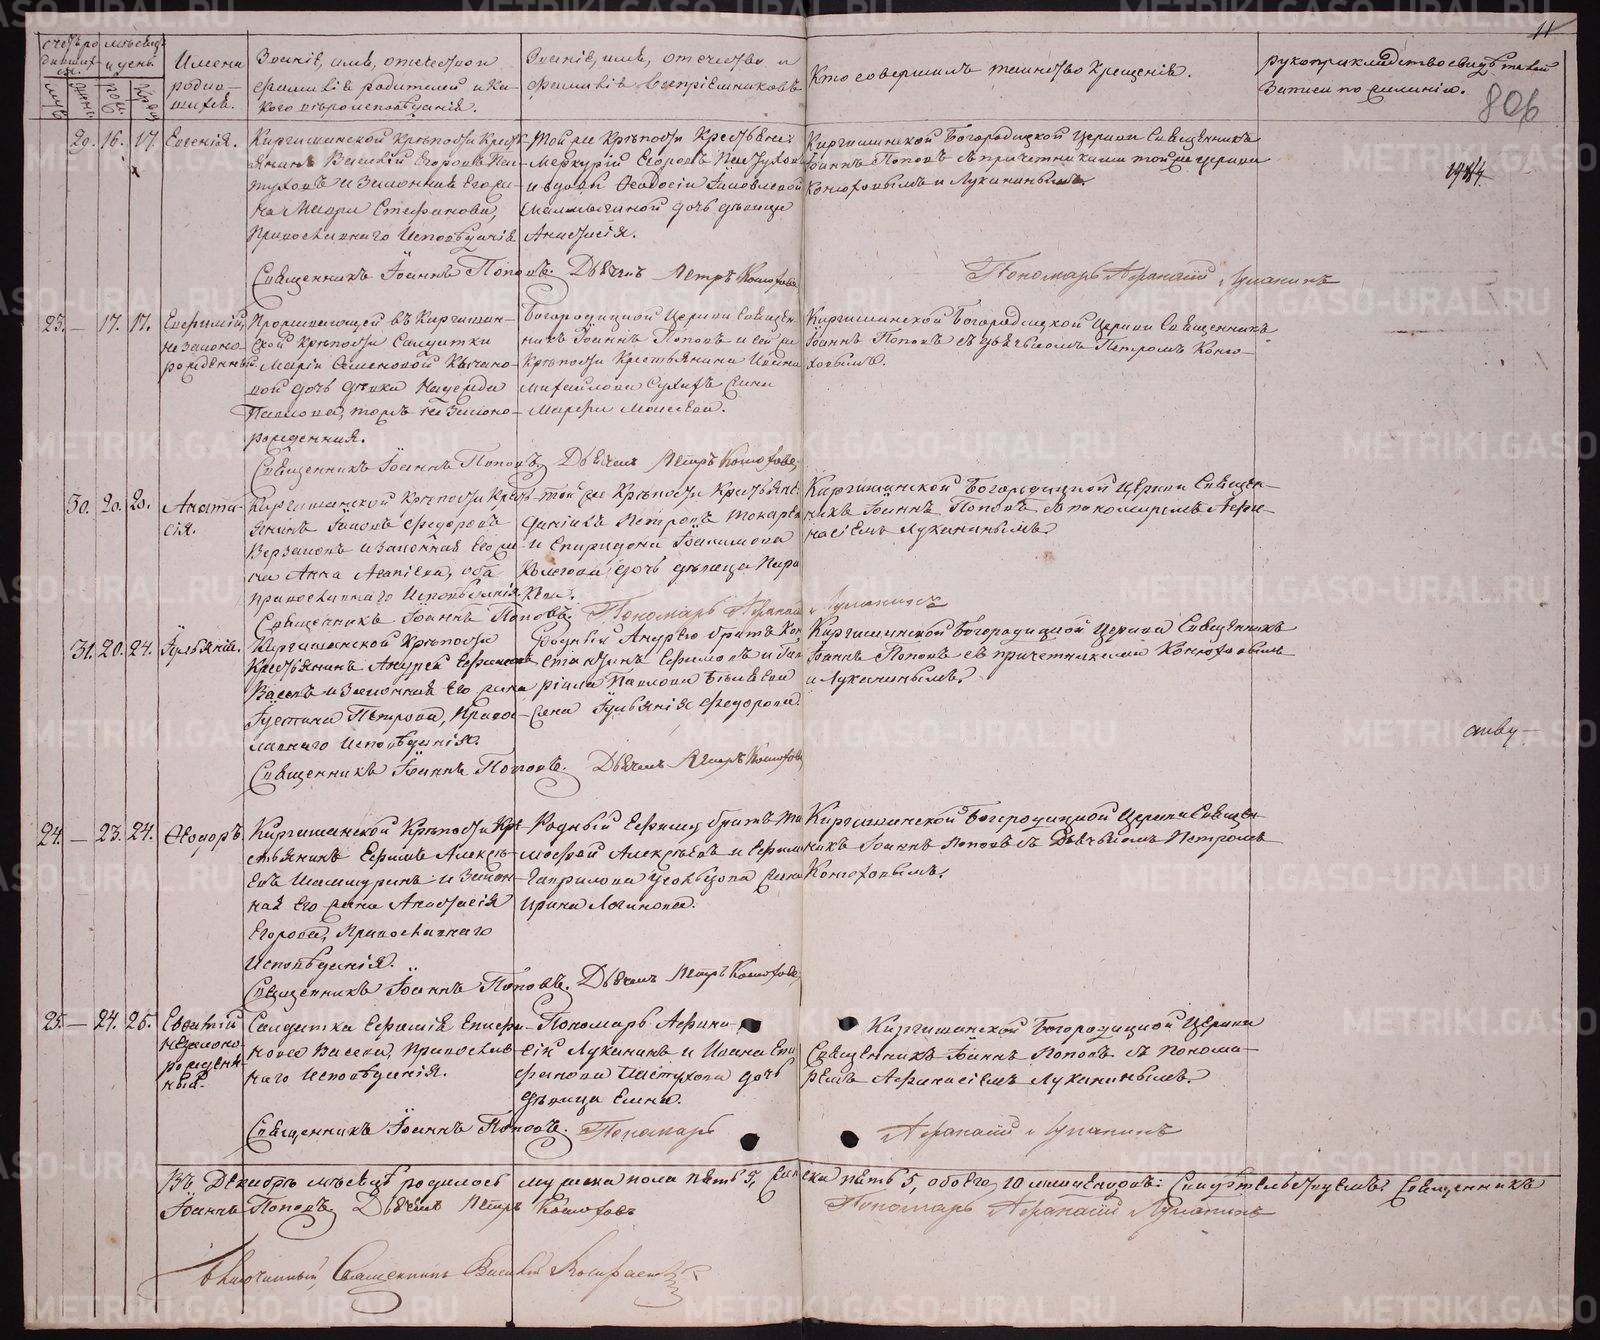 11
806
счетъ родившихся.
мѣсяцъ и день
муж.
женс.
рож.
крещ.
Имена родившихся.
Званіе, имя, отечество и
фамилія родителей и ка-
кого вѣроисповѣданія.
Званіе, имя, отечество и
фамилія воспріемниковъ
Кто совершалъ таинство крещенія.
рукоприкладство свидѣтелей
записи по желанію.
29. 16. 17. Евгенія.
Киргишанской Крѣпости Крест-
янинъ Василій Егоровъ Пас-
туховъ и законная его же-
на Марѳа Стефанова,
Православнаго Исповѣданія
Той же Крѣпости Крестьяне:
Меркурій Егоровъ Пастуховъ
и вдовы Ѳеодосіи Іаковлевой
дочь дѣвица
Анастасія.
Киргишанской Богородицкой Церкви Священникъ
Іоаннъ Поповъ съ причетниками той же церкви
Конюховымъ и Лукинынымъ.
Священникъ Іоаннъ Поповъ. Дьячекъ Петръ Конюховъ
Пономарь Афанасій Лукининъ
23. — 17. 17. Евфимій,
незаконно-
рожденный
Проживающей въ Киргишан-
ской крѣпости Солдатки
Маріи Семеновой
вой дочь дѣвка Надежда
Павлова, тожъ незаконо-
рожденная.
Богородицкой Церкви Священ-
никъ Іоаннъ Поповъ и сей же
Крѣпости Крестьянина Ивана
Михайлова Сухихъ жена
Марѳа Моисеева.
Киргишанской Богородицкой Церкви Священникъ
Іоаннъ Поповъ съ дьячькомъ Петромъ Коню-
ховымъ.
Священникъ Іоаннъ Поповъ. Дьячекъ Петръ Конюховъ
30. 20. 20. Анаста-
сія.
Киргишанской Крѣпости Крест-
янинъ Іаковъ Ѳедоровъ
Верзаковъ и законная его же-
на Анна Агапіева, оба
православнаго Исповѣданія
той же Крѣпости Крестьяне
Даніилъ Петровъ Токаревъ
и Спиридона Іоакимова
дочь дѣвица Пара-
кева.
Киргишанской Богородицкой Церкви Священ-
никъ Іоаннъ Поповъ съ пономаремъ Афа-
насіемъ Лукинынымъ.
Священникъ Іоаннъ Поповъ. Пономарь Афанасій Лукининъ
31. 20. 24. Іульянія.
Киргишанской Крѣпости
Крестьянинъ Андрей Ефимовъ
Васевъ и законная его жена
Іустина Петрова, Право-
славнаго Исповѣданія.
Родный Андрею братъ Кон-
стантинъ Ефимовъ и Гав-
ріила Павлова Бѣляева
жена Іульянія Ѳедорова.
Киргишанской Богородицкой Церкви Священникъ
Іоаннъ Поповъ съ причетниками Конюховымъ
и Лукинынымъ.
Священникъ Іоаннъ Поповъ. Дьячекъ Петръ Конюховъ
24. — 23. 24. Ѳеодоръ
Киргишанской Крѣпости Кре-
стьянинъ Ефимъ Алексѣ-
евъ Шашмуринъ и Закон-
ная его жена Анастасія
Егорова, Православнаго
Исповѣданія.
Родный Ефиму братъ Ти-
моѳей Алексѣевъ и Ефима
Гаврилова жена
Ирина Логинова.
Киргишанской Богородицкой Церкви Священ-
никъ Іоаннъ Поповъ съ Дьячькомъ Петромъ
Конюховымъ.
Священникъ Іоаннъ Поповъ. Дьячекъ Петръ Конюховъ
25. — 24. 25. Евѳатій
незаконо-
рожден-
ный.
Солдатка Ефимія Епифа-
нова Васева, Православ-
наго Исповѣданія.
Пономарь Афана-
сій Лукининъ и Ивана Епи-
фанова Пастухова дочь
дѣвица Елена.
Киргишанской Богородицкой Церкви
Священникъ Іоаннъ Поповъ съ Понома-
ремъ Афанасіемъ Лукинынымъ.
Священникъ Іоаннъ Поповъ. Пономарь Афанасій Лукининъ
Въ Декабрѣ мѣсяцѣ родилось мужеска пола пять 5, женска пять 5, обоего 10 младенцовъ: Свидѣтельствуемъ: Священникъ
Іоаннъ Поповъ. Дьячекъ Петръ Конюховъ Пономарь Афанасій Лукининъ
Благочинный, Священникъ Василій
METRIKI.GASO-URAL.RU